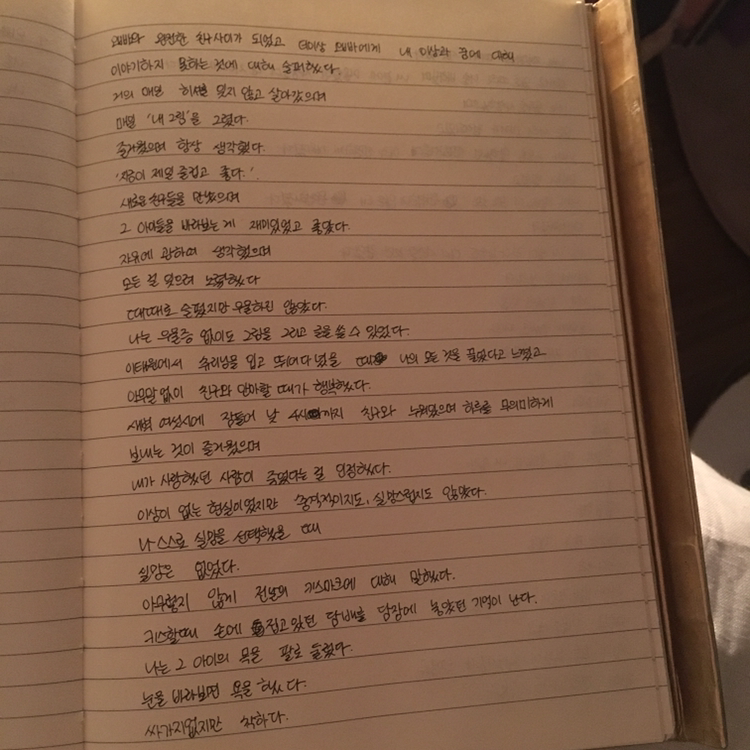 완전한 친구사이가 되었고 더이상 에게 내 이상과 꿈에 대해
이야기하지 못하는 것에 대해 슬퍼했다.
거의 매일 잊지 않고 살아갔으며
매일 '내 그림'을 그렸다.
즐거웠으며 항상 생각했다.
'지금이 제일 즐겁고 좋다.'.
새로운 친구들을 만났으며
그 아이들을 바라보는게 재미있었고 좋았다.
자유에 관하여 생각했으며
모든 걸 잊으려 노력했다
때때로 슬펐지만 우울하진 않았다.
나는 우울증 없이도 그림을 그리고 글을 쓸 수 있었다.
이태원에서 슈러님을 입고 뛰어다녔을 때 나의 모든 것을 끝났다고 느꼈고
아무말 없이 친구와 담배할 때가 행복했다.
새벽 여섯시에 잠들어 낮 4시까지 친구와 누워있으며 하루를 무의미하게
보내는 것이 즐거웠으며
내가 사랑했던 사람이 죽었다는 걸 인정했다.
이상이 없는 현실이었지만 충격적이지도, 실망스럽지도 않았다.
나 스스로 실망을 선택했을 때
실망은 없었다.
아무렇지 않게 전날의 키스마크에 대해 말했다.
키스할때 손에 집고있던 담배를 담장에 놓았던 기억이 난다.
나는 그 아이의 목을 팔로 둘렀다.
눈을 바라보면 욕을 했다.
싸가지없지만 착하다.